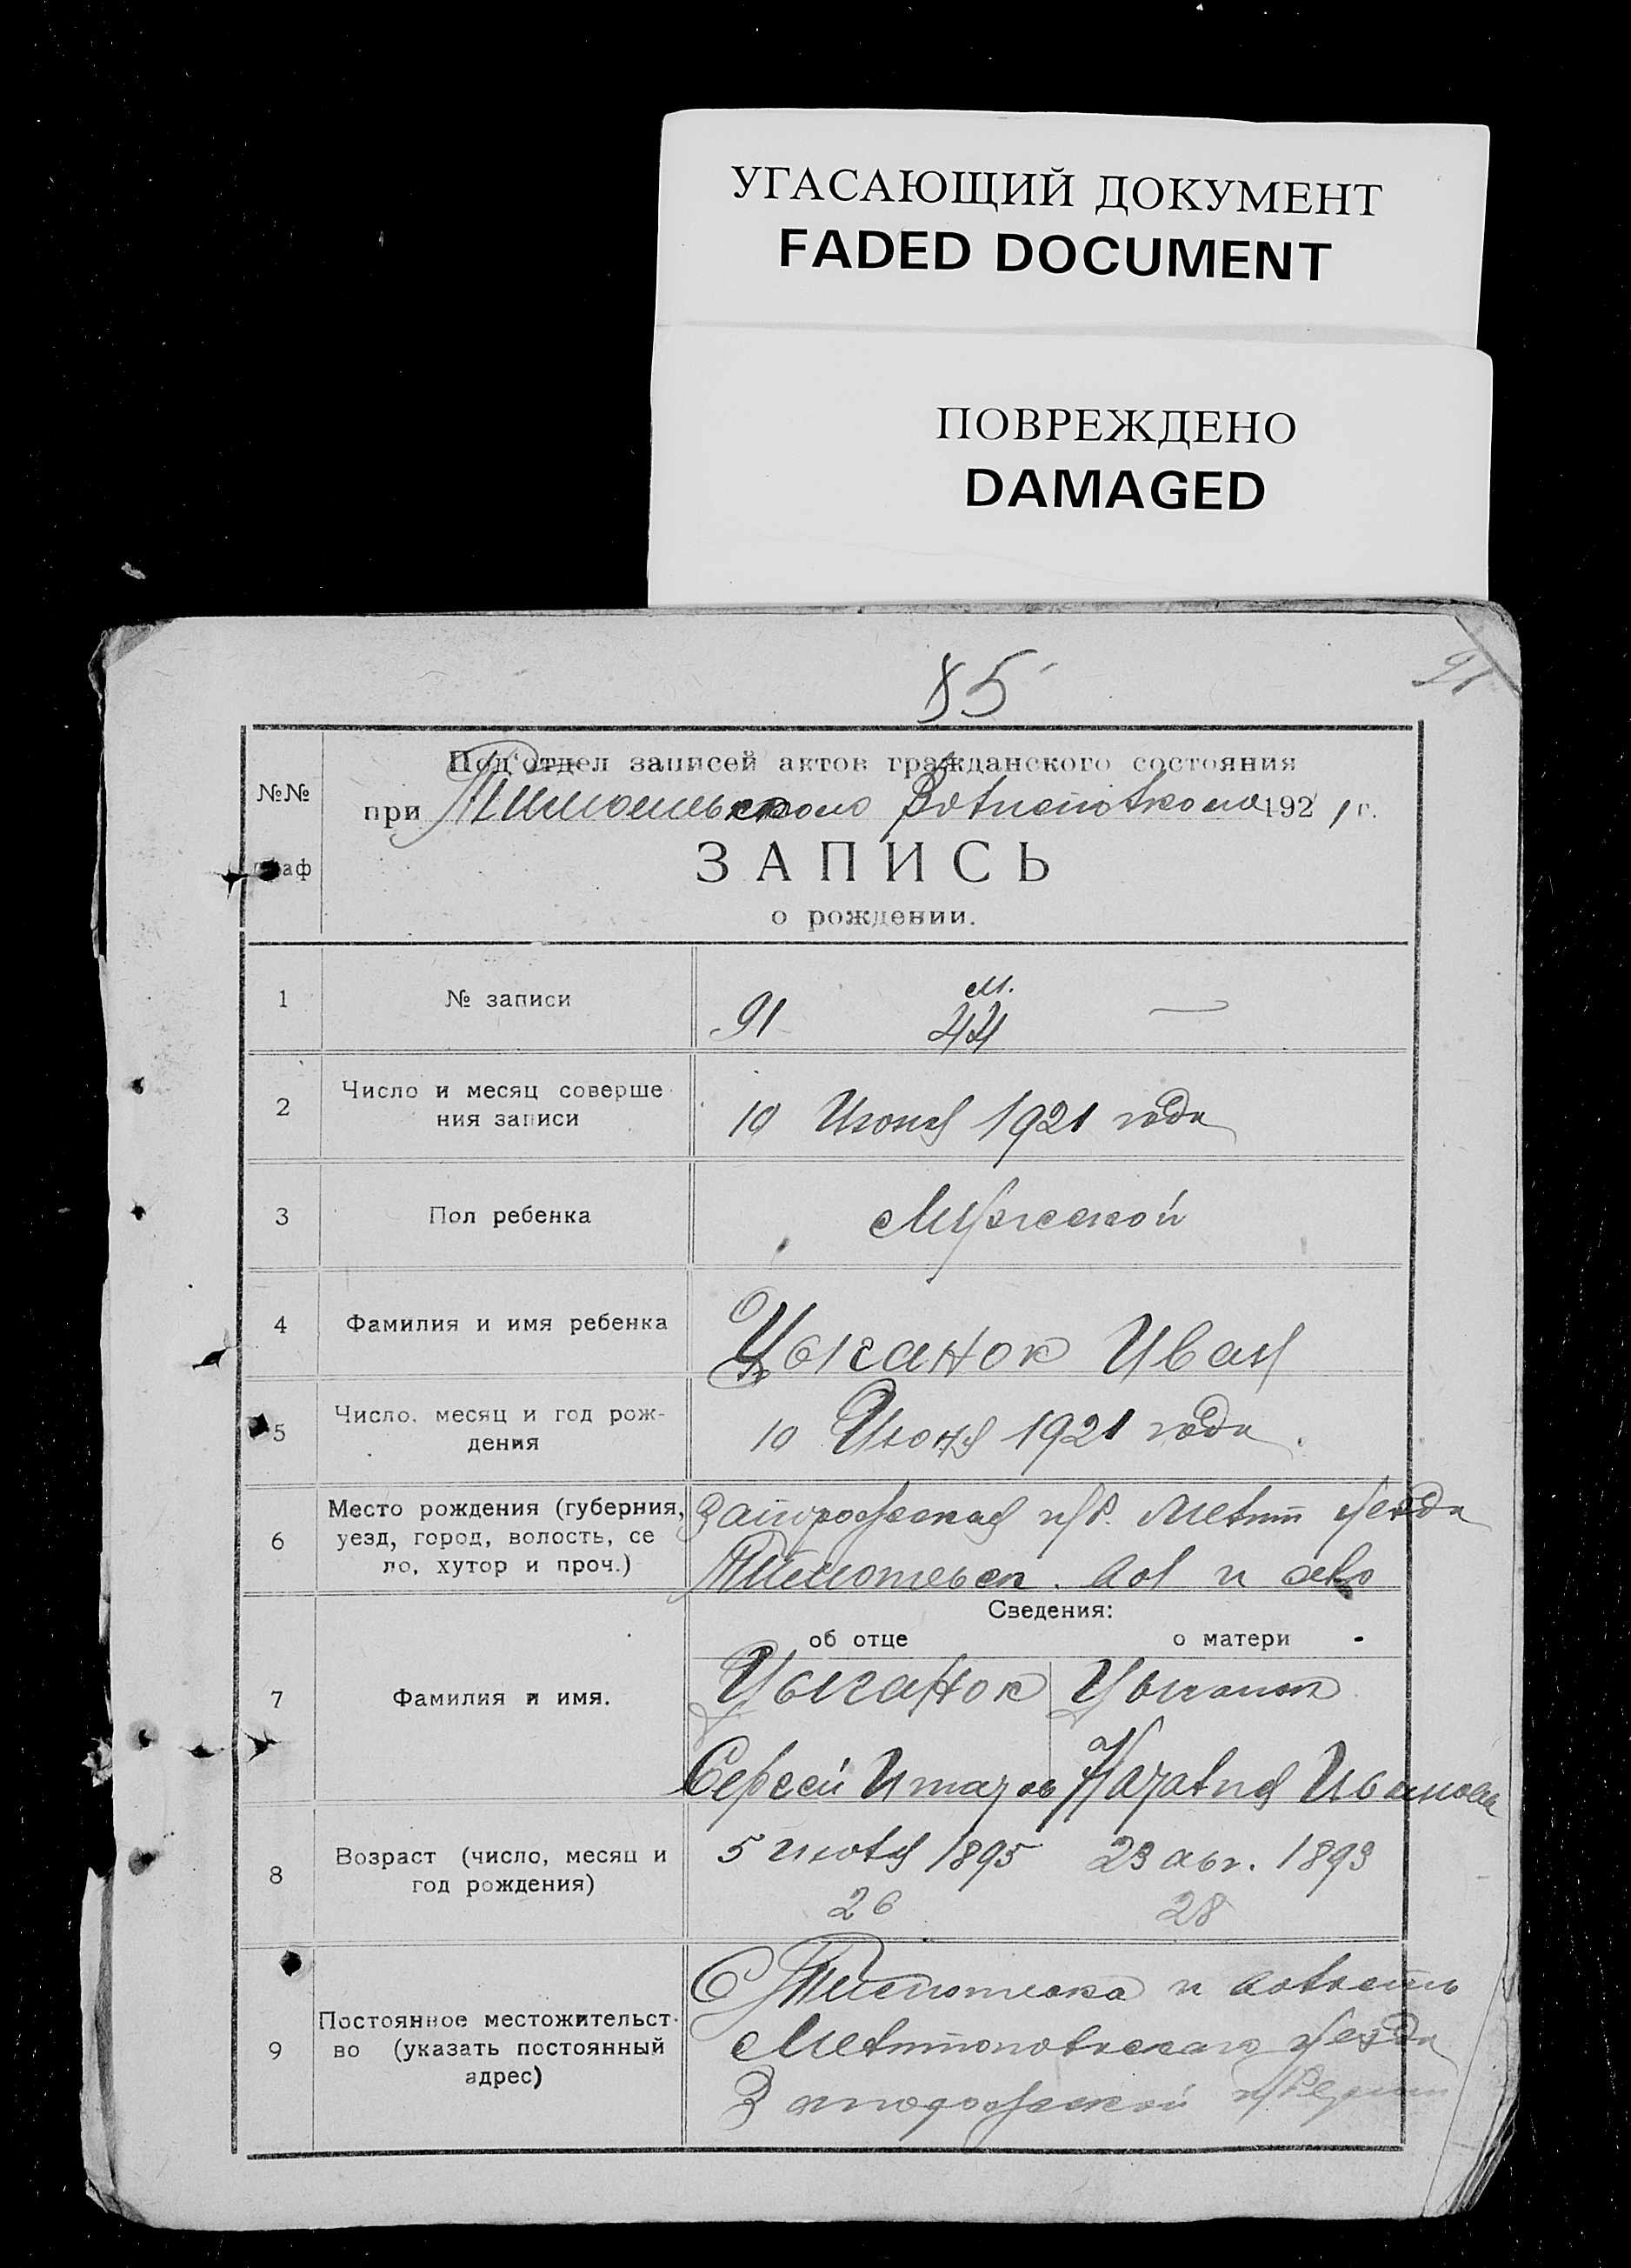 УГАСАЮЩИЙ ДОКУМЕНТ
FADED DOCUMENT
ПОВРЕЖДЕНО
DAMAGED
85
91
Под'отдел записей актов гражданского состояния
№№
при Волисполкома 1921 г.
ЗАПИСЬ
о рождении.
1 № записи 91 м. 44 —
2 Число и месяц соверше
ния записи 10 Июня 1921 года
3 Пол ребенка Мужской
4 Фамилия и имя ребенка Цыганок Иван
5 Число, месяц и год рож-
дения 10 Июня 1921 года
6 Место рождения (губерния, Запорожская губ. Мелит уезда
уезд, город, волость, се
ло, хутор и проч.) вол и село
Сведения:
об отце о матери
7 Фамилия и имя. Цыганок Цыганок
Сергей Наталия Иванова
8 Возраст (число, месяц и 5 июля 1895 23 авг. 1893
год рождения)
26 28
С и волость
9 Постоянное местожительст-
во (указать постоянный Мелитопольского уезда
адрес) Запорожской губернии